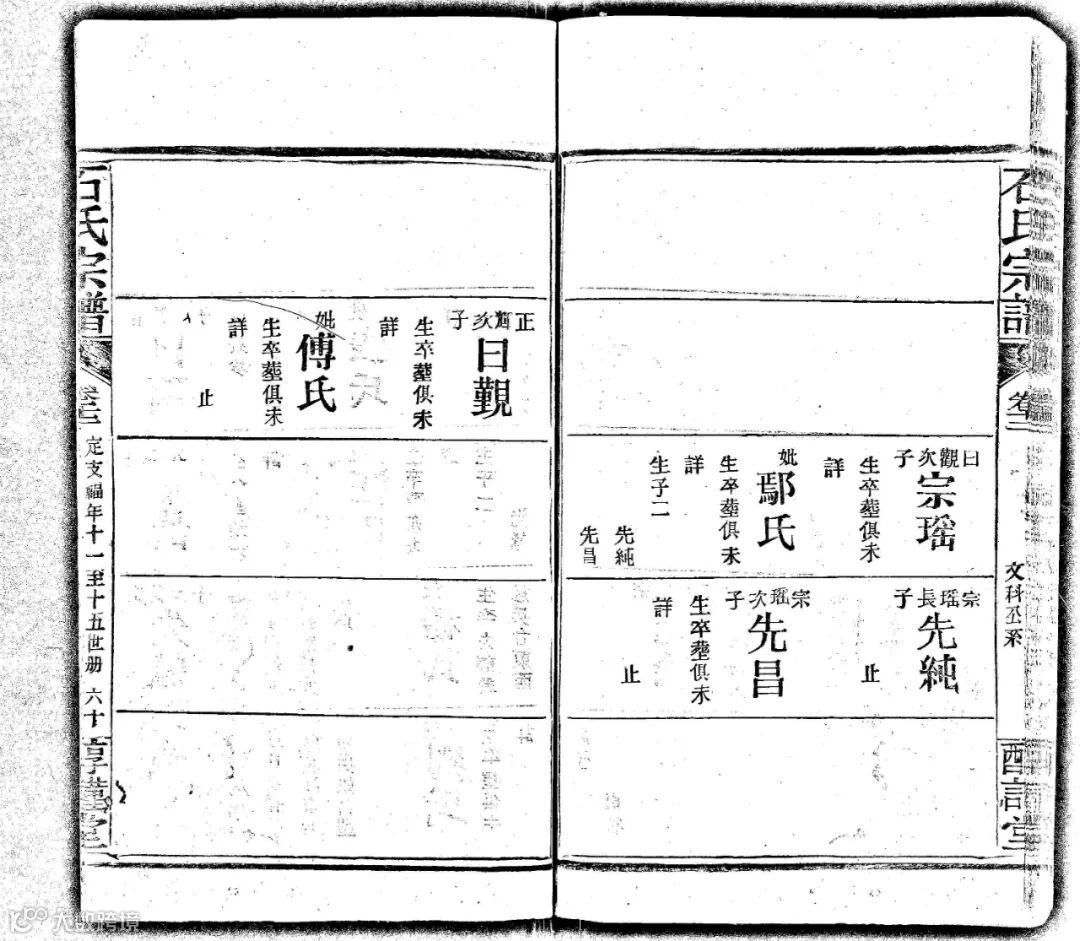 石氏宗譜
文科公系
曰觀次子
宗瑶
生卒塟俱未
詳
妣
鄢氏
生卒塟俱未
詳
生子二
先純
先昌
宗瑶長子
先純
止
宗瑶次子
先昌
生卒塟俱未
詳
止
正輝次子
曰覲
生卒塟俱未
詳
妣
傅氏
生卒塟俱未
詳
止
石氏宗譜
定支福年十一至十五世册
六十
大数跨境